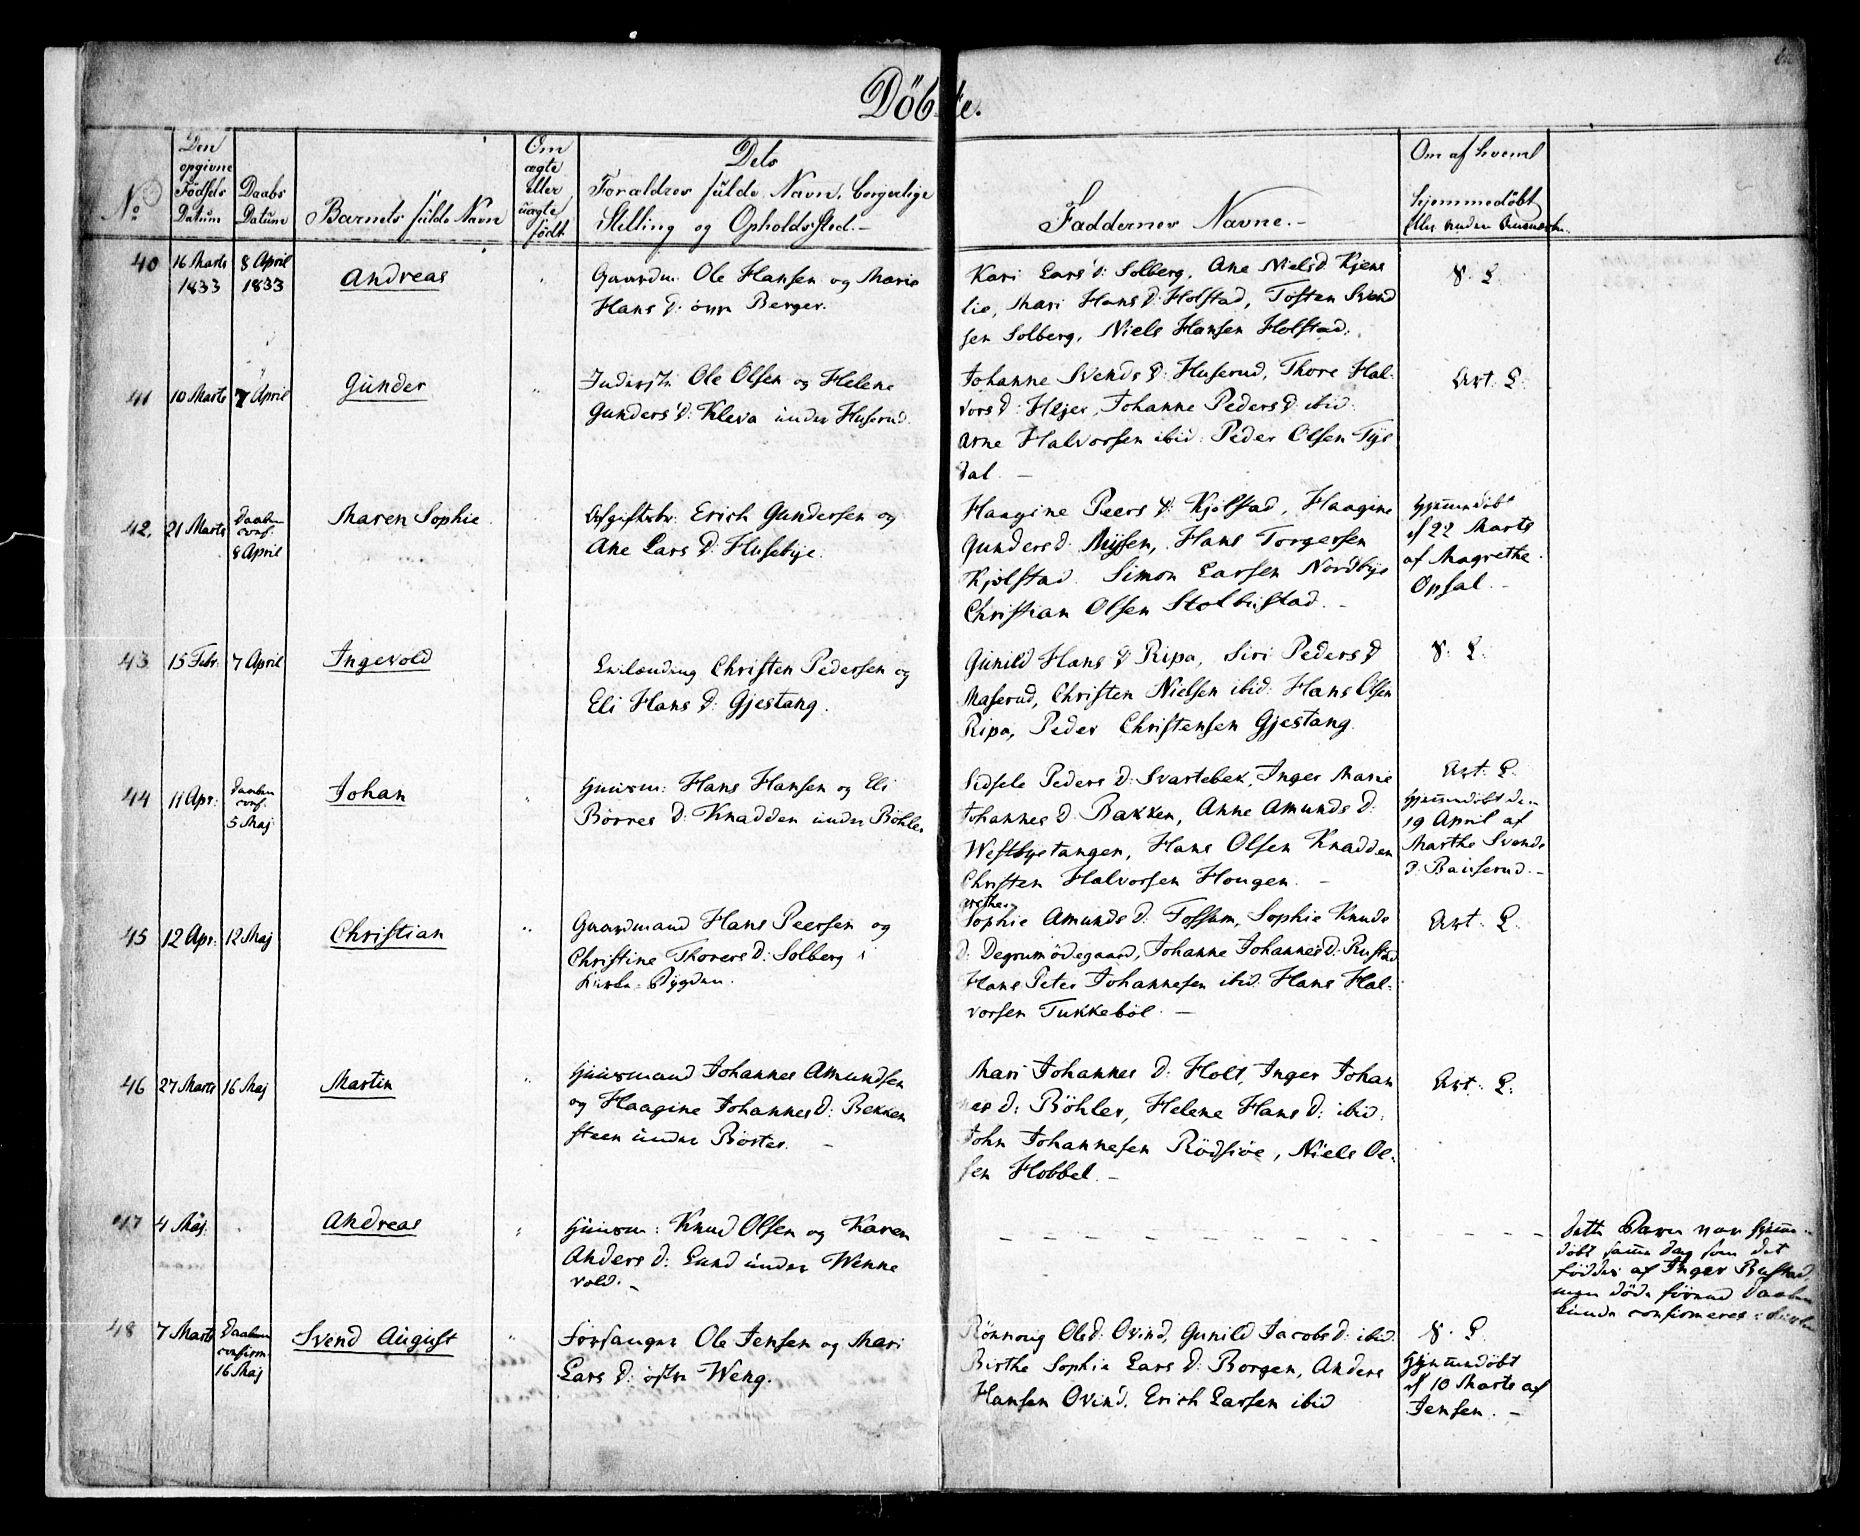 Döbte.
No
Den
opgivne
Födsels
Datum
Daabs
Datum
Barnets fulde Navn
Om
ægte
eller
uægte
födt.
Dets
Forældres fulde Navn, borgerlige
Stilling og Opholdssted.-
Faddernes Navne.-
Om af hvem
hjemmedöbt
40
16 Marts
1833
8 April
1833
Andreas
Gaardm. Ole Hansen og Marie
Hans D: övr Berger.
Kari Lars D: Solberg, Ane Niels D Kjens
lie, Mari Hans D: Holstad, Tosten Svend
sen Solberg, Niels Hansen Holstad.
V. L.
41
10 Marts
7 April
Gunder
Inderst: Ole Olsen og Helene
Gunders D: Kleva under Huserud.
Johanne Svends D: Huserud, Thore Hal-
vors D: Hejer, Johanne Peders D ibid:
Arne Halvorsen ibid: Peder Olsen Tys
dal. -
Art: L:
42.
21 Marts
Daaben
conf.
8 April
Maren Sophie
Afgiftsbr: Erich Gundersen og
Ane Lars D: Husebye.
Haagine Peers D: Kjölstad, Haagine
Gunders D. Mysen, Hans Torgersen
Kjölstad. Simon Larsen Nordbye
Christian Olsen Stolbustad. -
Hjemmedöbt
d 22 Marts
af Magrethe
Opsal. -
43
15 Febr.
7 April
Ingevold
Qvilænding Christen Pedersen og
Eli Hans D: Gjestang.
Gunild Hans D: Ripa, Siri Peders D
Maserud, Christen Nielsen ibid: Hans Olsen
Ripa, Peder Christensen Gjestang.
V: L:
44
11 Apr:
Daaben
conf.
5 Maj
Johan
Huusm: Hans Hansen og Eli
Börres D: Knadden under Böhler
Sidsele Peders D: Svartebek, Inger Marie
Johannes D: Bakken, Anne Amunds D:
Westbyetangen, Hans Olsen Knadden
Christen Halvorsen Hougen. -
Art: L.
Hjemmedöbt den
19 April af
Marthe Svends
D: Bauserud. -
45
12 Apr:
12 Maj
Christian
Gaardmand Hans Peersen og
Christine Thorers D: Solberg i
Kirke-Bygden.
Grethe
Sophie Amunds D: Fossum, Sophie Knuds
D: Degrumödegaard, Johanne Johannes D: Rustad
Hans Peter Johannesen ibid: Hans Hal-
vorsen Tukkeböl. -
Art: L.
46
27 Marts
16 Maj
Martin
Huusmand Johannes Amundsen
og Haagine Johannes D: Bekken
steen under Börter. -
Mari Johannes D: Holt, Inger Johan
nes D: Böhler, Helene Hans D: ibid:
John Johannesen Rödsiöe, Niels Ol-
sen Hobbel. -
Art: L:
47
4 Maj.
Andreas
Huusm: Knud Olsen og Karen
Anders D: Lund under Wenne
vold. -
Dette Barn var hjemme-
döbt samme Dag som det
föddes af Inger Rustad,
men döde förend Daaben
kunde confirmeres i Kirken
48
7 Marts
Daaben
confirm.
16 Maj
Svend August
Forsanger Ole Jensen og Mari
Lars D: östr Weng.
Rönnoug Ols D: Ovind, Gunild Jacobs D: ibid:
Birthe Sophie Lars D: Borgen, Anders
Hansen Ovind. Erich Larsen ibid
V. L.
Hjemmedöbt
d 10 Marts af
Jensen. -